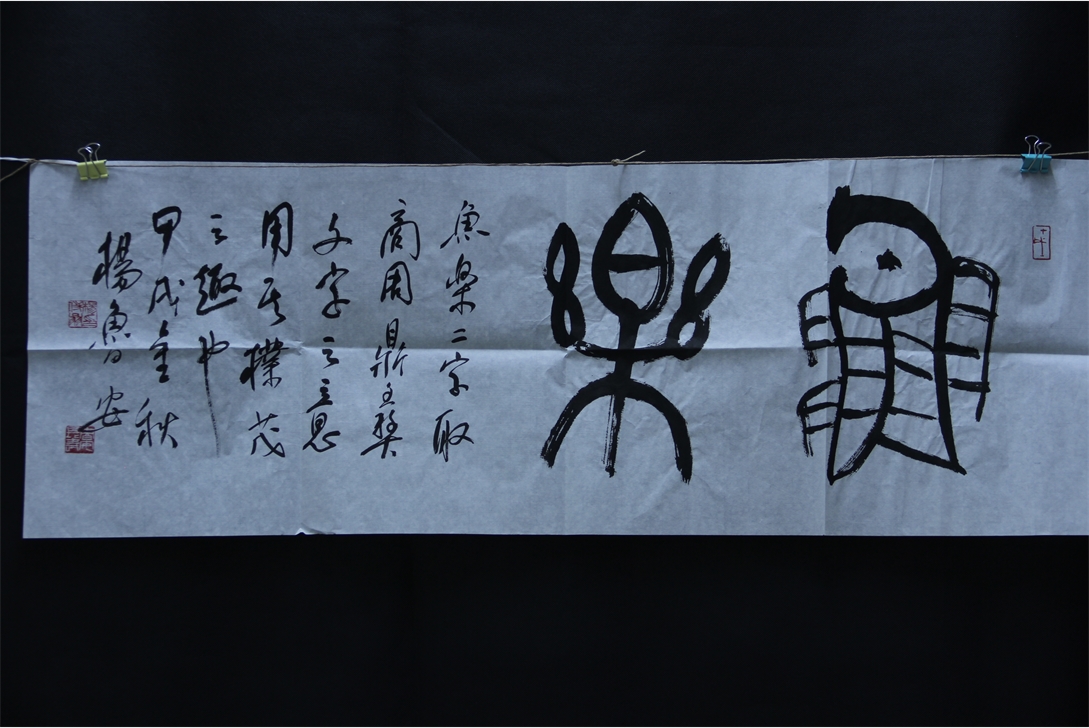 魚樂
魚樂二字取
商周鼎彝
文字之意
用其樸茂
之趣也
甲戌金秋
楊魯安